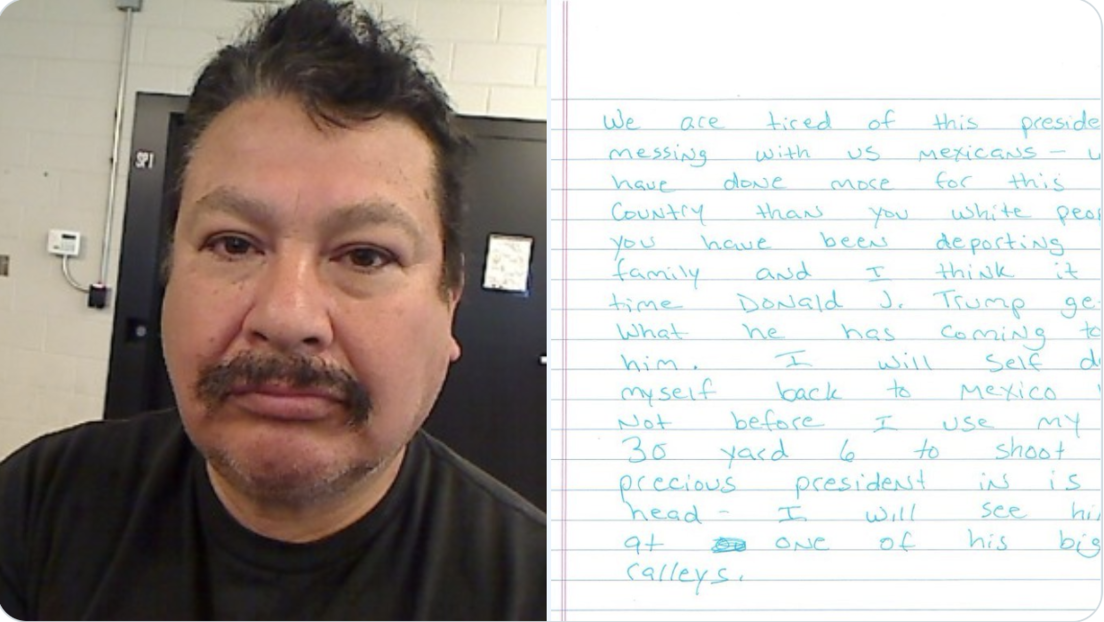 SPI
We are tired of this preside
messing with us mexicans -
have done more for this
Country than you white
you have been deporting
family and I think it
time Donald J. Trump ge
What he has coming to
him. I will self d
myself back to mexico
Not before I use my
30 yard 6 to shoot
precious president in is
head - I will see hi
at one of his big
ralleys.